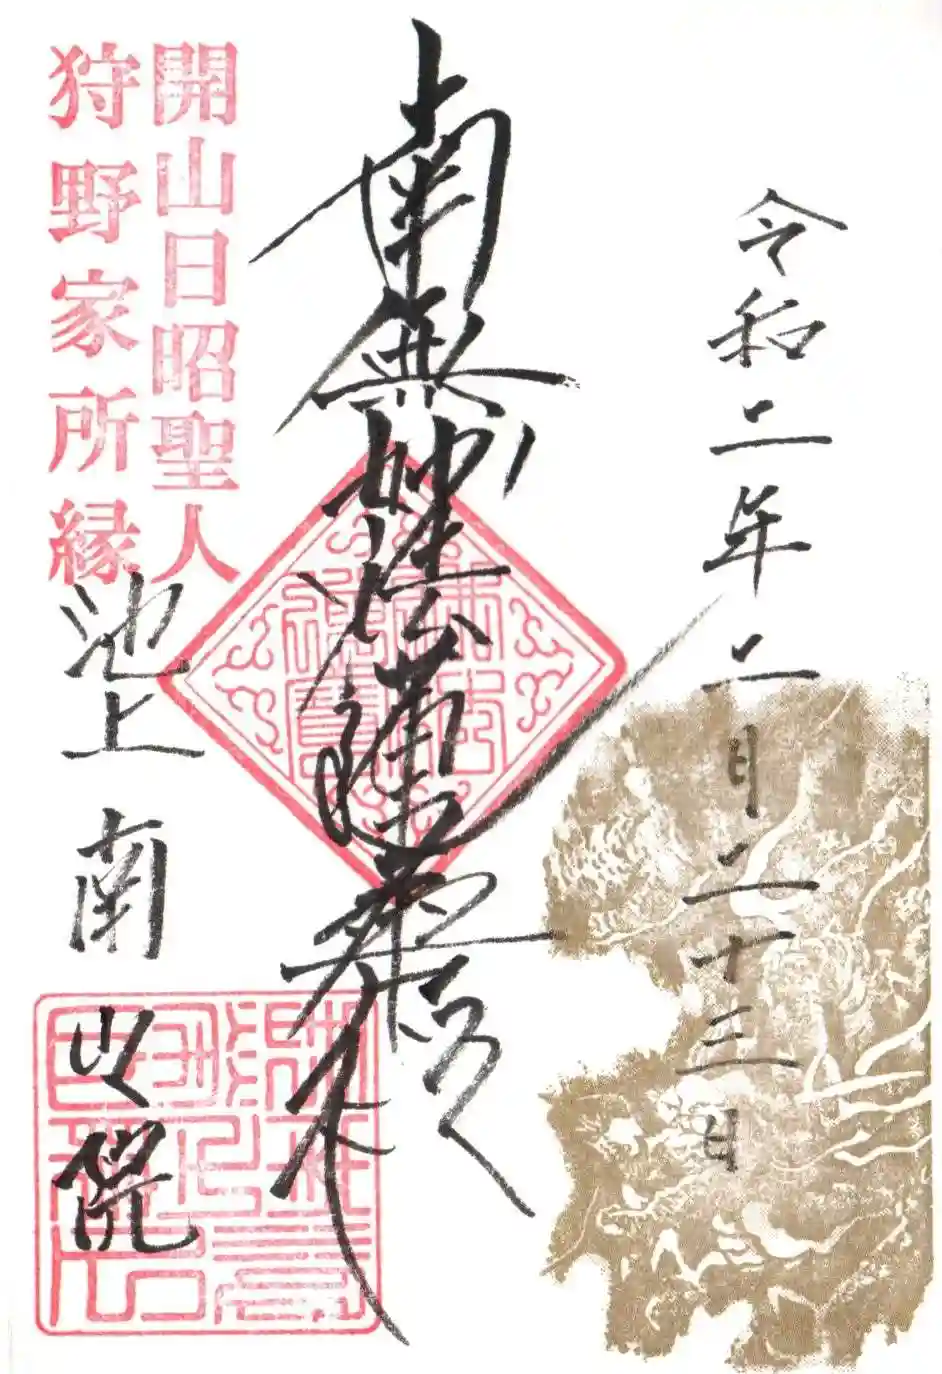 令和二年二月二十三日
南無妙法蓮華経
開山日昭聖人
狩野家所縁
池上 南之院